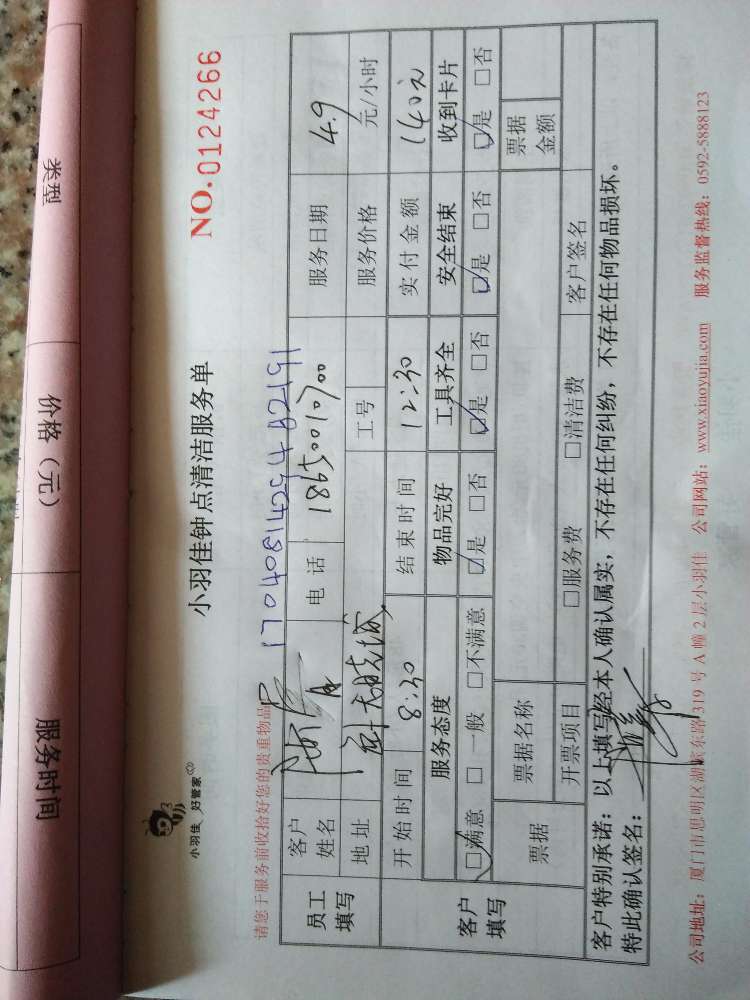 类型 价格（元） 服务时间
小羽佳 好管家
小羽佳钟点清洁服务单
NO.0124266
请您于服务前收拾好您的贵重物品
17040811425482191
员工填写 客户姓名 电话 18650010700 服务日期 4.9
地址 工号 服务价格 元/小时
客户填写 开始时间 8:30 结束时间 12:30 实付金额 140元
服务态度 物品完好 工具齐全 安全结束 收到卡片
☑满意 □一般 □不满意 ☑是 □否 ☑是 □否 ☑是 □否 ☑是 □否
票据 票据名称 票据金额
开票项目 □服务费 □清洁费 客户签名
客户特别承诺：以上填写经本人确认属实，不存在任何纠纷，不存在任何物品损坏。
特此确认签名：
公司地址：厦门市思明区湖滨东路319号A幢2层小羽佳 公司网站：www.xiaoyujia.com 服务监督热线：0592-5888123